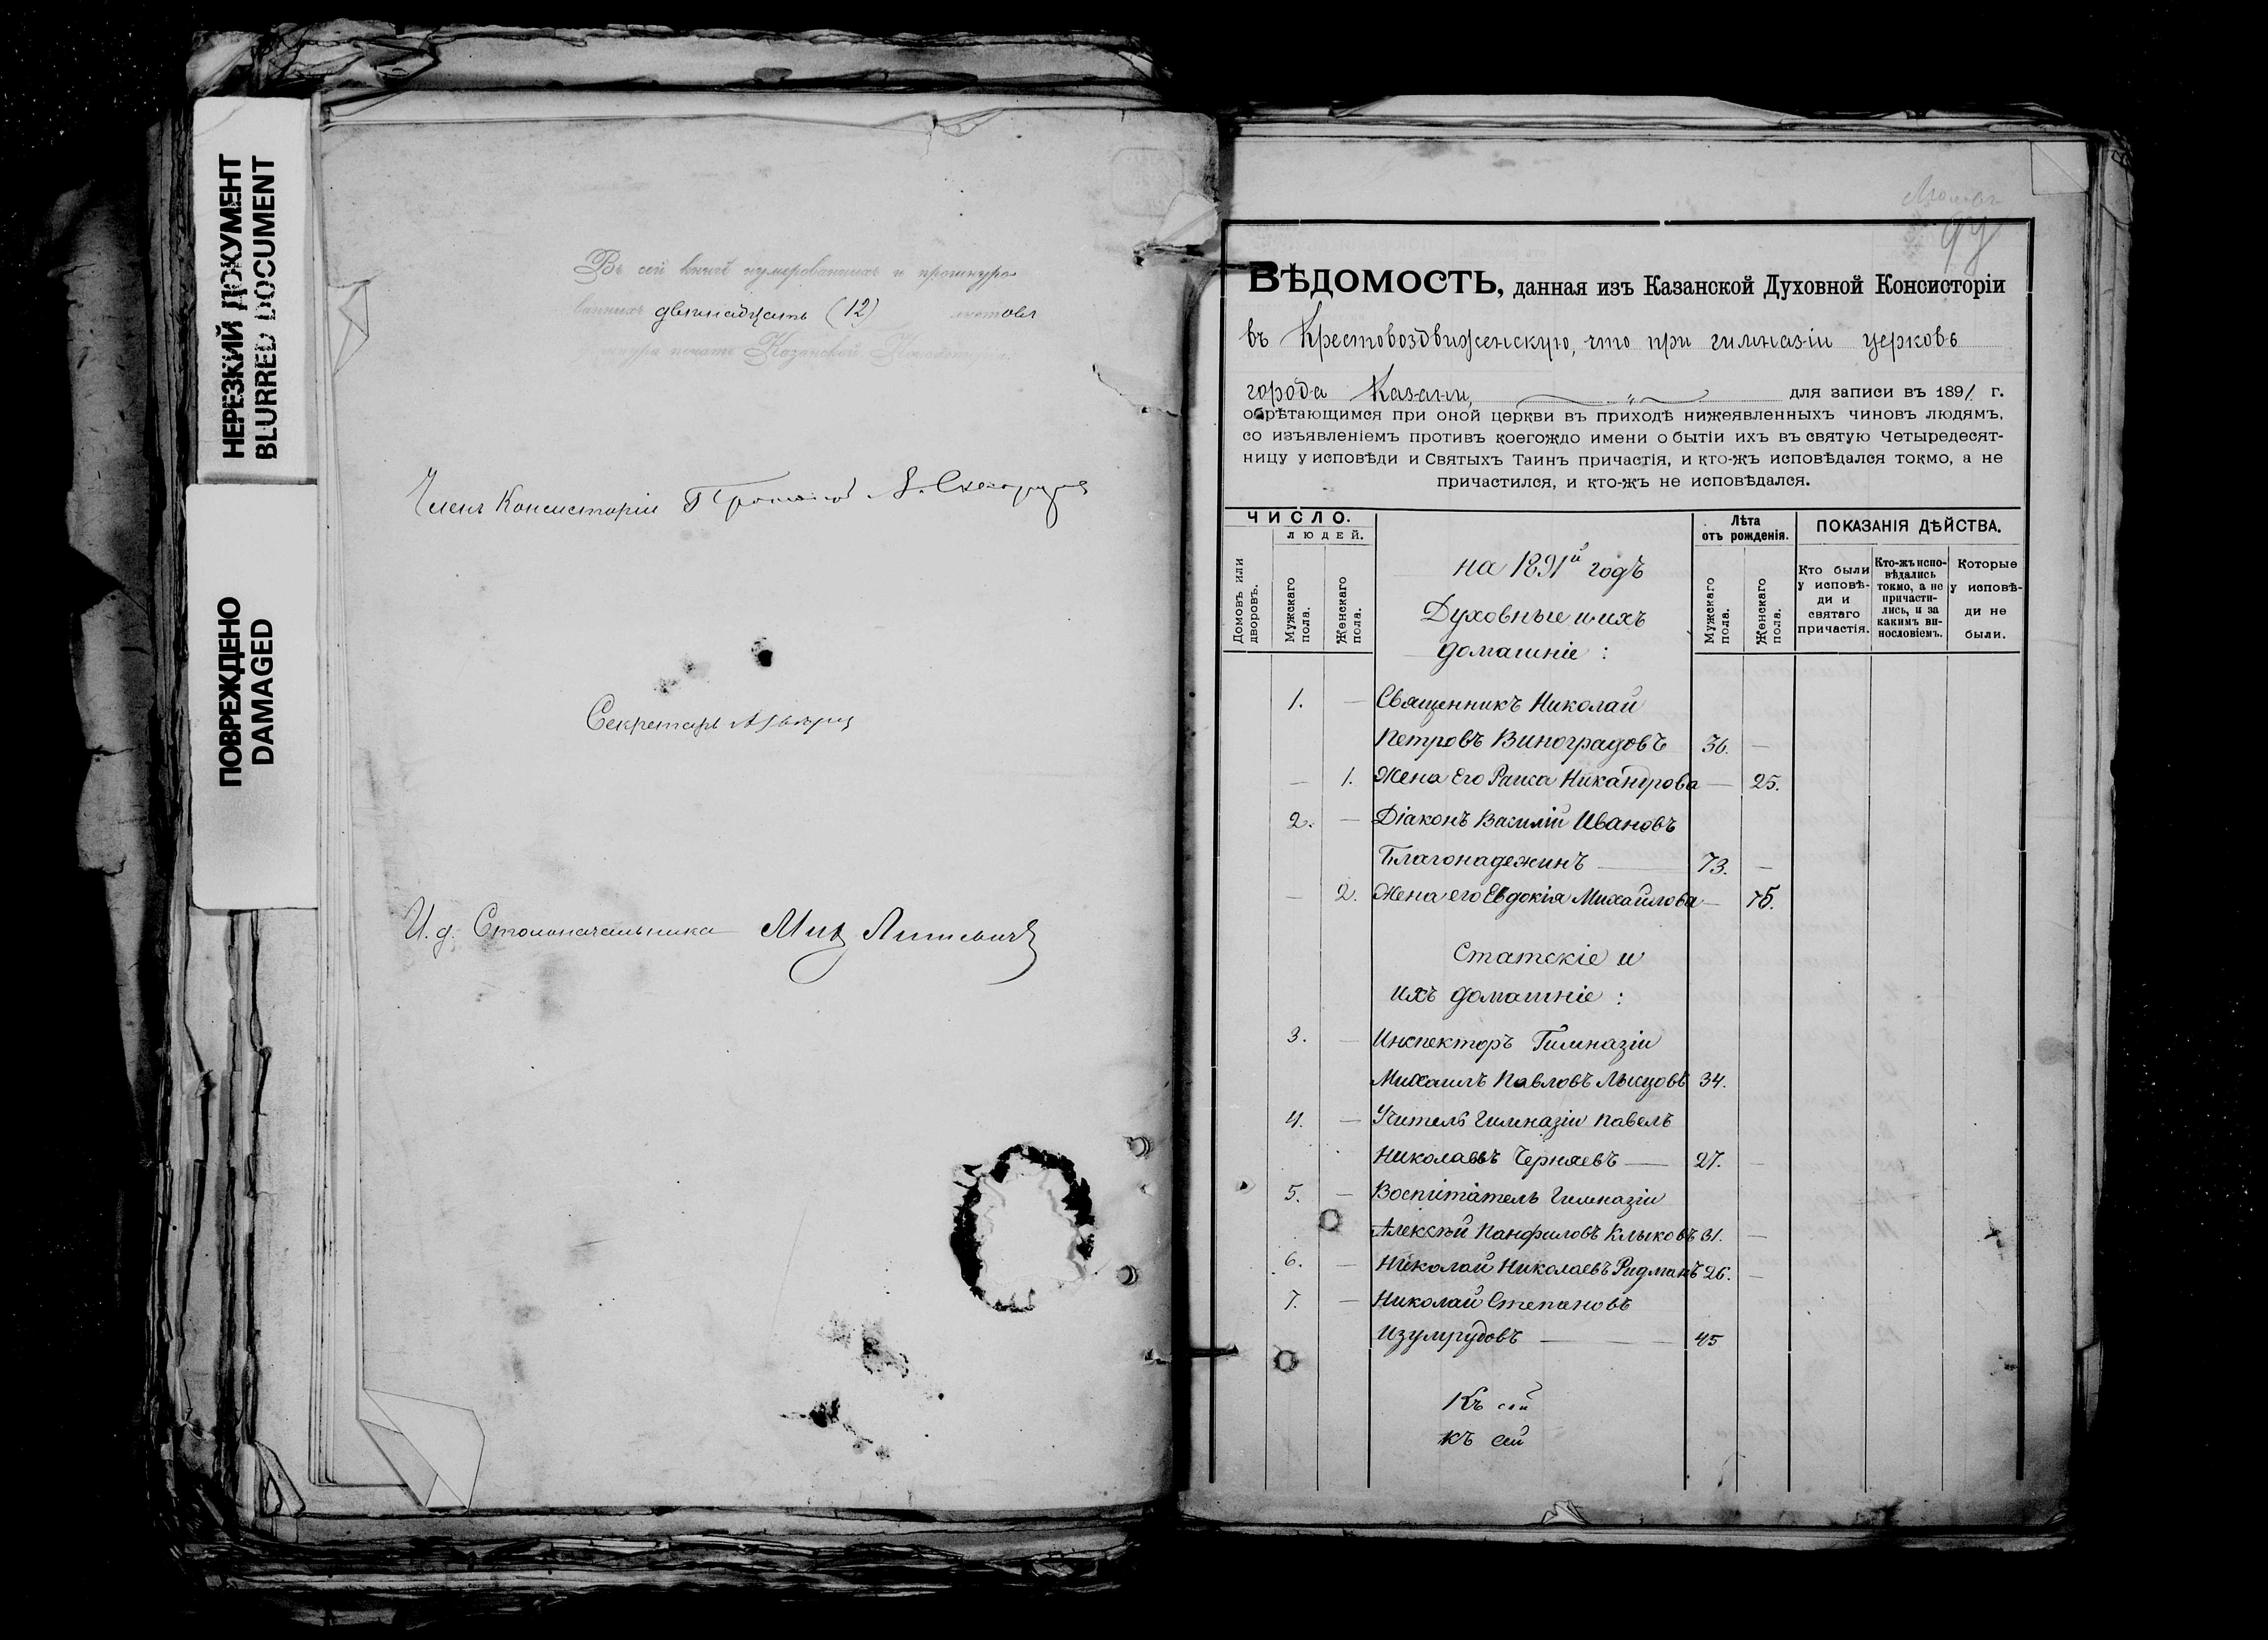 НЕРЕЗКИЙ ДОКУМЕНТ
BLURRED DOCUMENT
ПОВРЕЖДЕНО
DAMAGED
Въ сей книгѣ нумерованныхъ и прошнуро-
ванныхъ двѣнадцать (12) листовъ
печати Казанской Консисторіи
Членъ Консисторіи
Секретарь
И. д. Столоначальника
ВѢДОМОСТЬ, данная изъ Казанской Духовной Консисторіи
въ Крестовоздвиженскую, что при гимназіи церковь
города Казани, для записи въ 1891 г.
обрѣтающимся при оной церкви въ приходѣ нижеявленныхъ чиновъ людямъ,
со изъявленіемъ противъ коегождо имени о бытіи ихъ въ святую Четыредесят-
ницу у исповѣди и Святыхъ Таинъ причастія, и кто-жъ исповѣдался токмо, а не
причастился, и кто-жъ не исповѣдался.
ЧИСЛО.
ЛЮДЕЙ.
Домовъ или дворовъ.
Мужскаго пола.
Женскаго пола.
Лѣта отъ рожденія.
Мужскаго пола.
Женскаго пола.
ПОКАЗАНІЯ ДѢЙСТВА.
Кто были у исповѣ-ди и святаго причастія.
Кто-жъ испо-вѣдались токмо, а не причасти-лись, и за какимъ ви-нословіемъ.
Которые у исповѣ-ди не были.
на 1891й годъ
Духовные и ихъ
домашніе :
1. — Священникъ Николай
Петровъ Виноградовъ 36. —
— 1. Жена Его Раиса Никандрова — 25.
2. — Діаконъ Василій Ивановъ
Благонадежинъ — 73. —
— 2. Жена его Евдокія Михайлова — 75.
Статскіе и
ихъ домашніе :
3. — Инспекторъ Гимназіи
Михаилъ Павловъ 34.
4. — Учитель Гимназіи Павелъ
Николаевъ Черняевъ — 27. —
5. — Воспитатель Гимназіи
Алексѣй Панфиловъ Клыковъ 31. —
6. — Николай Николаевъ Ридманъ 26. —
7. — Николай Степановъ
Изумрудовъ — 45
Къ сей
къ сей